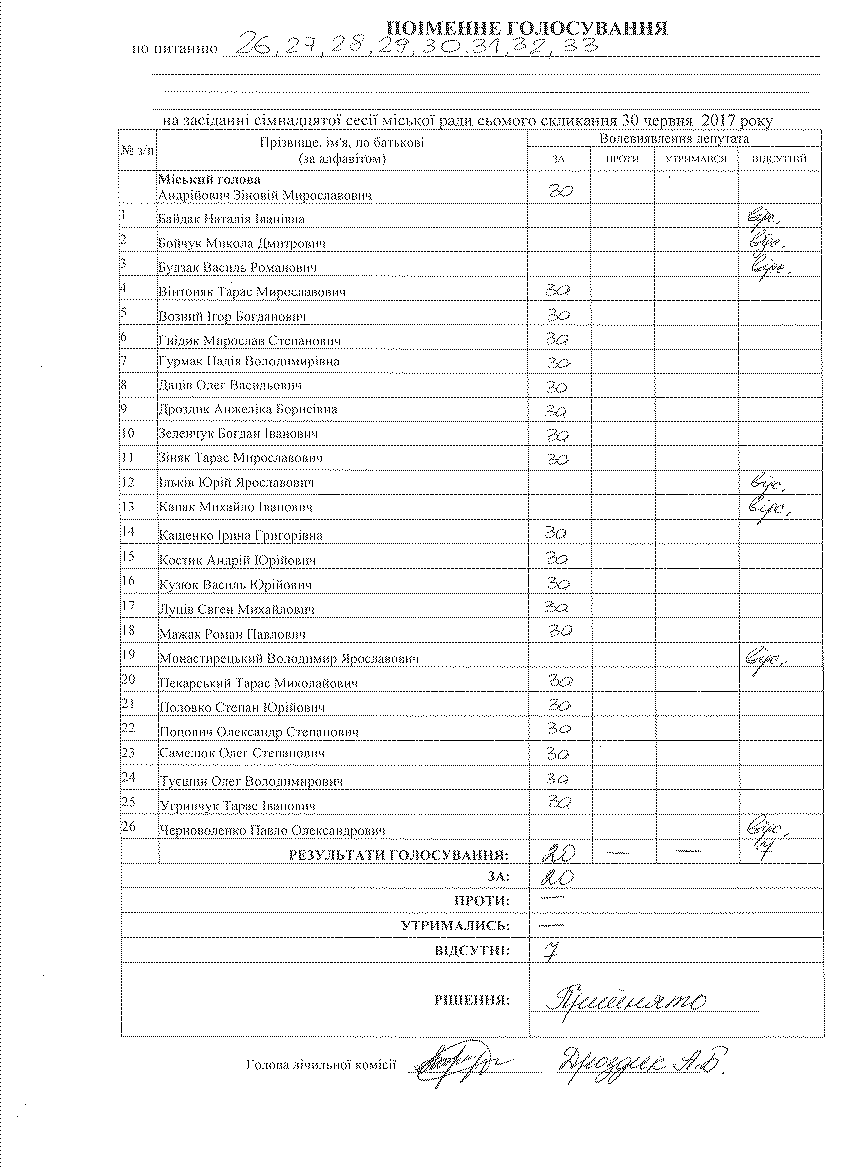 ПОІМЕННЕ ГОЛОСУВАННЯ
по питанню 26, 27, 28, 29, 30, 31, 32, 33
на засіданні сімнадцятої сесії міської ради сьомого скликання 30 червня 2017 року
№ з/п Прізвище, ім'я, по батькові (за алфавітом) Волевиявлення депутата
ЗА ПРОТИ УТРИМАВСЯ ВІДСУТНІЙ
Міський голова
Андрійович Зіновій Мирославович зо
1 Байдак Наталія Іванівна відс.
2 Бойчук Микола Дмитрович відс.
3 Будзак Василь Романович відс.
4 Вінтоняк Тарас Мирославович зо
5 Возний Ігор Богданович зо
6 Гнідик Мирослав Степанович зо
7 Гурмак Надія Володимирівна зо
8 Даців Олег Васильович зо
9 Дроздик Анжеліка Борисівна зо
10 Зеленчук Богдан Іванович зо
11 Зіняк Тарас Мирославович зо
12 Ільків Юрій Ярославович відс.
13 Капак Михайло Іванович відс.
14 Кащенко Ірина Григорівна зо
15 Костик Андрій Юрійович зо
16 Кузюк Василь Юрійович зо
17 Луців Євген Михайлович зо
18 Мажак Роман Павлович зо
19 Монастирецький Володимир Ярославович відс.
20 Пекарський Тарас Миколайович зо
21 Половко Степан Юрійович зо
22 Попович Олександр Степанович зо
23 Самелюк Олег Степанович зо
24 Туєшин Олег Володимирович зо
25 Угринчук Тарас Іванович зо
26 Черноволенко Павло Олександрович відс.
РЕЗУЛЬТАТИ ГОЛОСУВАННЯ: 20 — — 7
ЗА: 20
ПРОТИ: —
УТРИМАЛИСЬ: —
ВІДСУТНІ: 7
РІШЕННЯ: Прийнято
Голова лічильної комісії Дроздик А.Б.